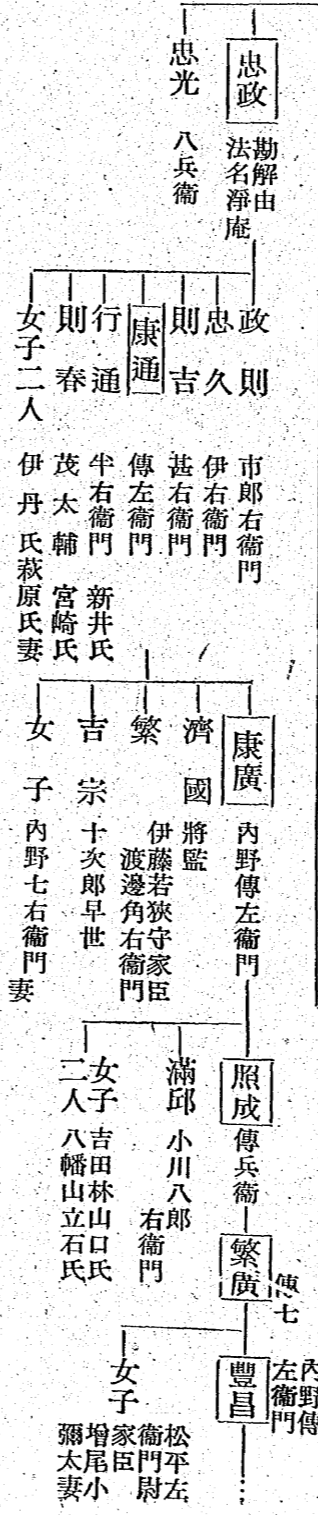 忠政
勘解由
法名淨庵
忠光 八兵衞
政則 市郎右衞門
忠久 伊右衞門
則吉 甚右衞門
康通 傳左衞門
行通 半右衞門 新井氏
則春 茂太輔 宮崎氏
女子二人 伊丹氏萩原氏妻
康廣 內野傳左衞門
濟國 將監
繁 伊藤若狹守家臣
渡邊角右衞門
吉宗 十次郎早世
女子 內野七右衞門妻
照成 傳兵衞
滿邱 小川八郎
右衞門
女子 吉田林山口氏
二人 八幡山立石氏
繁廣 傳七
豐昌 內野傳
左衞門
女子
松平左
衞門尉
家臣
增尾小
彌太妻